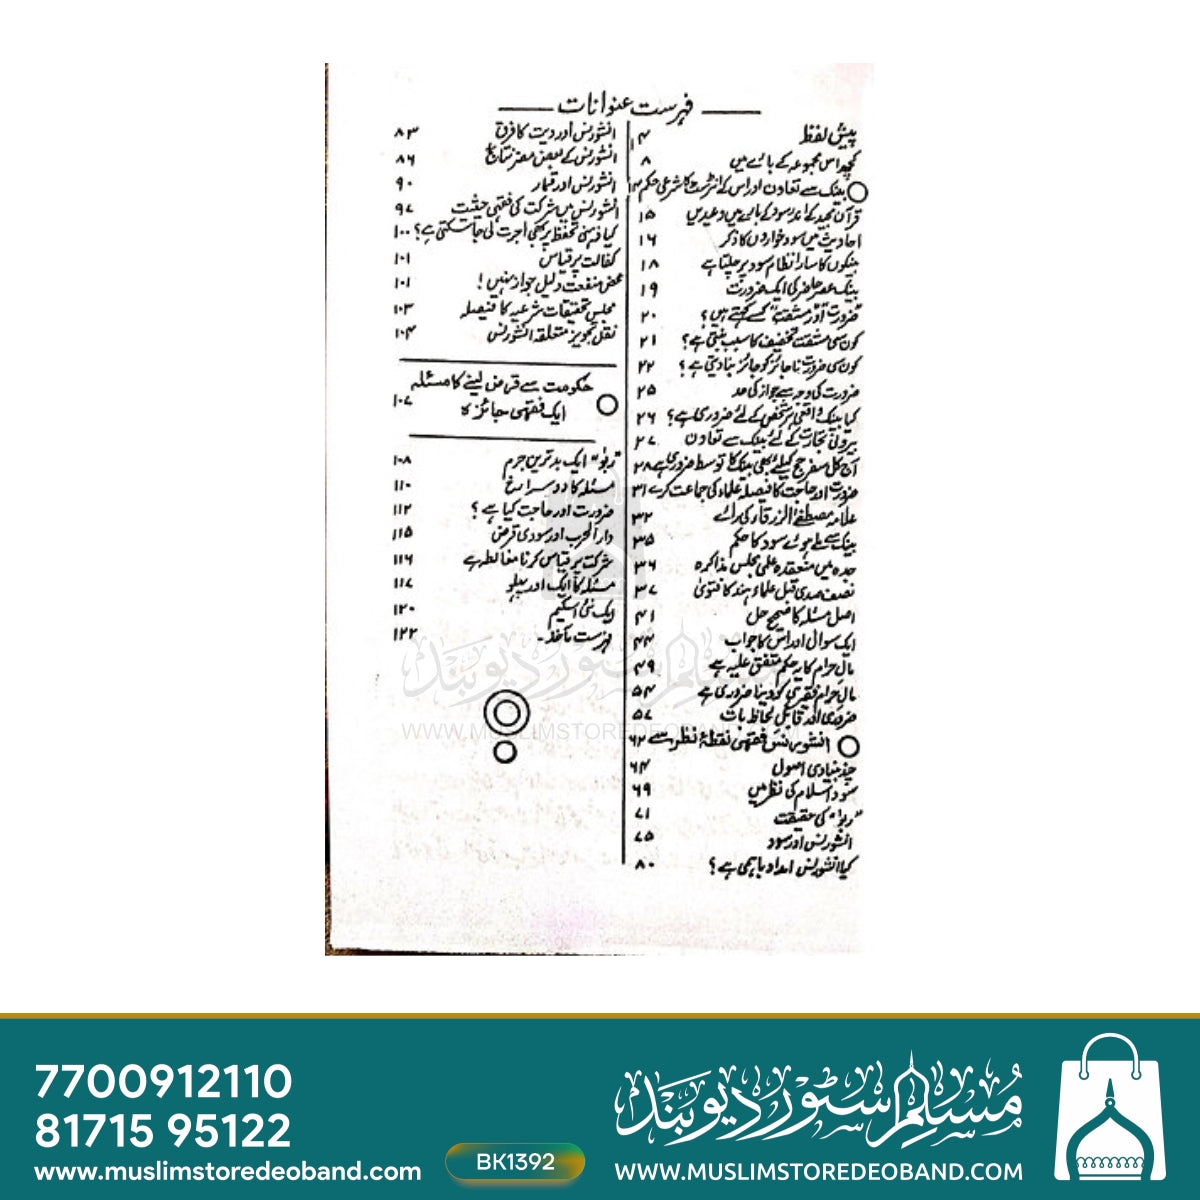 فہرست عنوانات
پیش لفظ ۴
کچھ اس مجموعہ کے بارے میں ۸
بینک سے تعاون اور اس کے انٹرسٹ کا شرعی حکم ۱۴
قرآن مجید کے اندر سود کے بارے میں وعیدیں ۱۵
احادیث میں سود خواروں کا ذکر ۱۶
بینکوں کا سارا نظام سود پر چلتا ہے ۱۸
بینک عصر حاضر کی ایک ضرورت ۱۹
"ضرورت" اور "مشقت" کسے کہتے ہیں؟ ۲۰
کون سی مشقت تخفیف کا سبب بنتی ہے؟ ۲۱
کون سی ضرورت ناجائز کو جائز بنا دیتی ہے؟ ۲۲
ضرورت کی وجہ سے جواز کی حد ۲۵
کیا بینک واقعی ہر شخص کے لئے ضروری ہے؟ ۲۶
بیرونی تجارت کے لئے بینک سے تعاون ۲۷
آج کل سفر حج کیلئے بھی بینک کا توسط ضروری ہے ۲۸
ضرورت اور حاجت کا فیصلہ علماء کی جماعت کرے ۳۱
علامہ مصطفےٰ الزرقاء کی رائے ۳۲
بینک سے ملے ہوئے سود کا حکم ۳۵
جدہ میں منعقدہ علمی مجلس مذاکرہ ۳۶
نصف صدی قبل علماء ہند کا فتویٰ ۳۷
اصل مسئلہ کا صحیح حل ۴۱
ایک سوال اور اس کا جواب ۴۴
مال حرام کا یہ حکم متفق علیہ ہے ۴۹
مال حرام فقیر ہی کو دینا ضروری ہے ۵۴
ضروری اور قابل لحاظ بات ۵۷
انشورنس فقہی نقطۂ نظر سے ۶۲
چند بنیادی اصول ۶۴
سود اسلام کی نظر میں ۶۹
"ربوٰ" کی حقیقت ۷۱
انشورنس اور سود ۷۵
کیا انشورنس امداد باہمی ہے؟ ۸۰
انشورنس اور دیت کا فرق ۸۳
انشورنس کے بعض مضر نتائج ۸۶
انشورنس اور قمار ۹۰
انشورنس میں شرکت کی فقہی حیثیت ۹۷
کیا ذہنی تحفظ پر بھی اجرت لی جا سکتی ہے؟ ۱۰۰
کفالت پر قیاس ۱۰۱
محض منفعت دلیل جواز نہیں! ۱۰۱
مجلس تحقیقات شرعیہ کا فیصلہ ۱۰۳
نقل تجویز متعلقہ انشورنس ۱۰۴
حکومت سے قرض لینے کا مسئلہ
ایک فقہی جائزہ ۱۰۷
"ربوٰ" ایک بدترین جرم ۱۰۸
مسئلہ کا دوسرا رخ ۱۱۰
ضرورت اور حاجت کیا ہے؟ ۱۱۲
دارالحرب اور سودی قرض ۱۱۵
شرکت پر قیاس کرنا مغالطہ ہے ۱۱۶
مسئلہ کا ایک اور پہلو ۱۱۷
ایک نئی اسکیم ۱۲۰
فہرست مآخذ - ۱۲۲
مسلم سٹور دیوبند
WWW.MUSLIMSTOREDEOBAND.COM
7700912110
81715 95122
www.muslimstoredeoband.com
BK1392
مسلم سٹور دیوبند
WWW.MUSLIMSTOREDEOBAND.COM